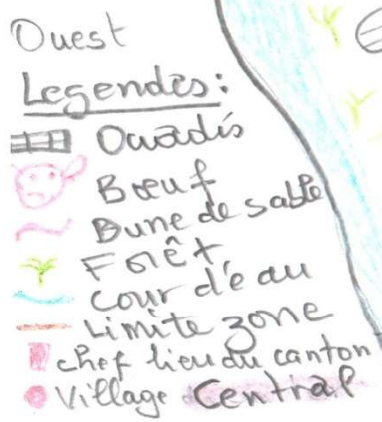 Ouest
Legendes:
Ouadis
Bœuf
Dune de sable
Forêt
Cour d'eau
Limite zone
chef lieu du canton
Village Central